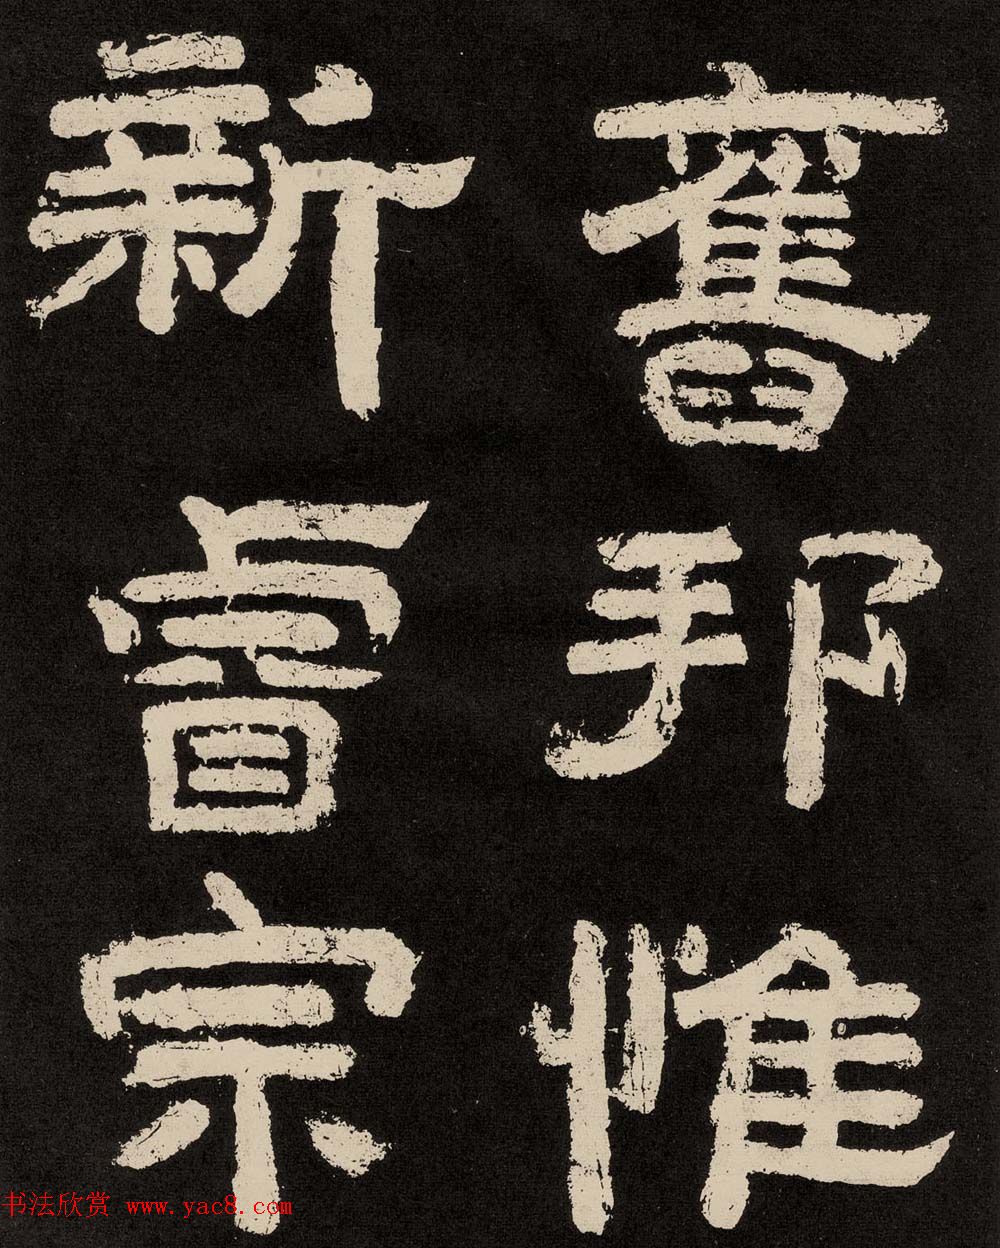 舊邦惟
新睿宗
书法欣赏 www.yac8.com